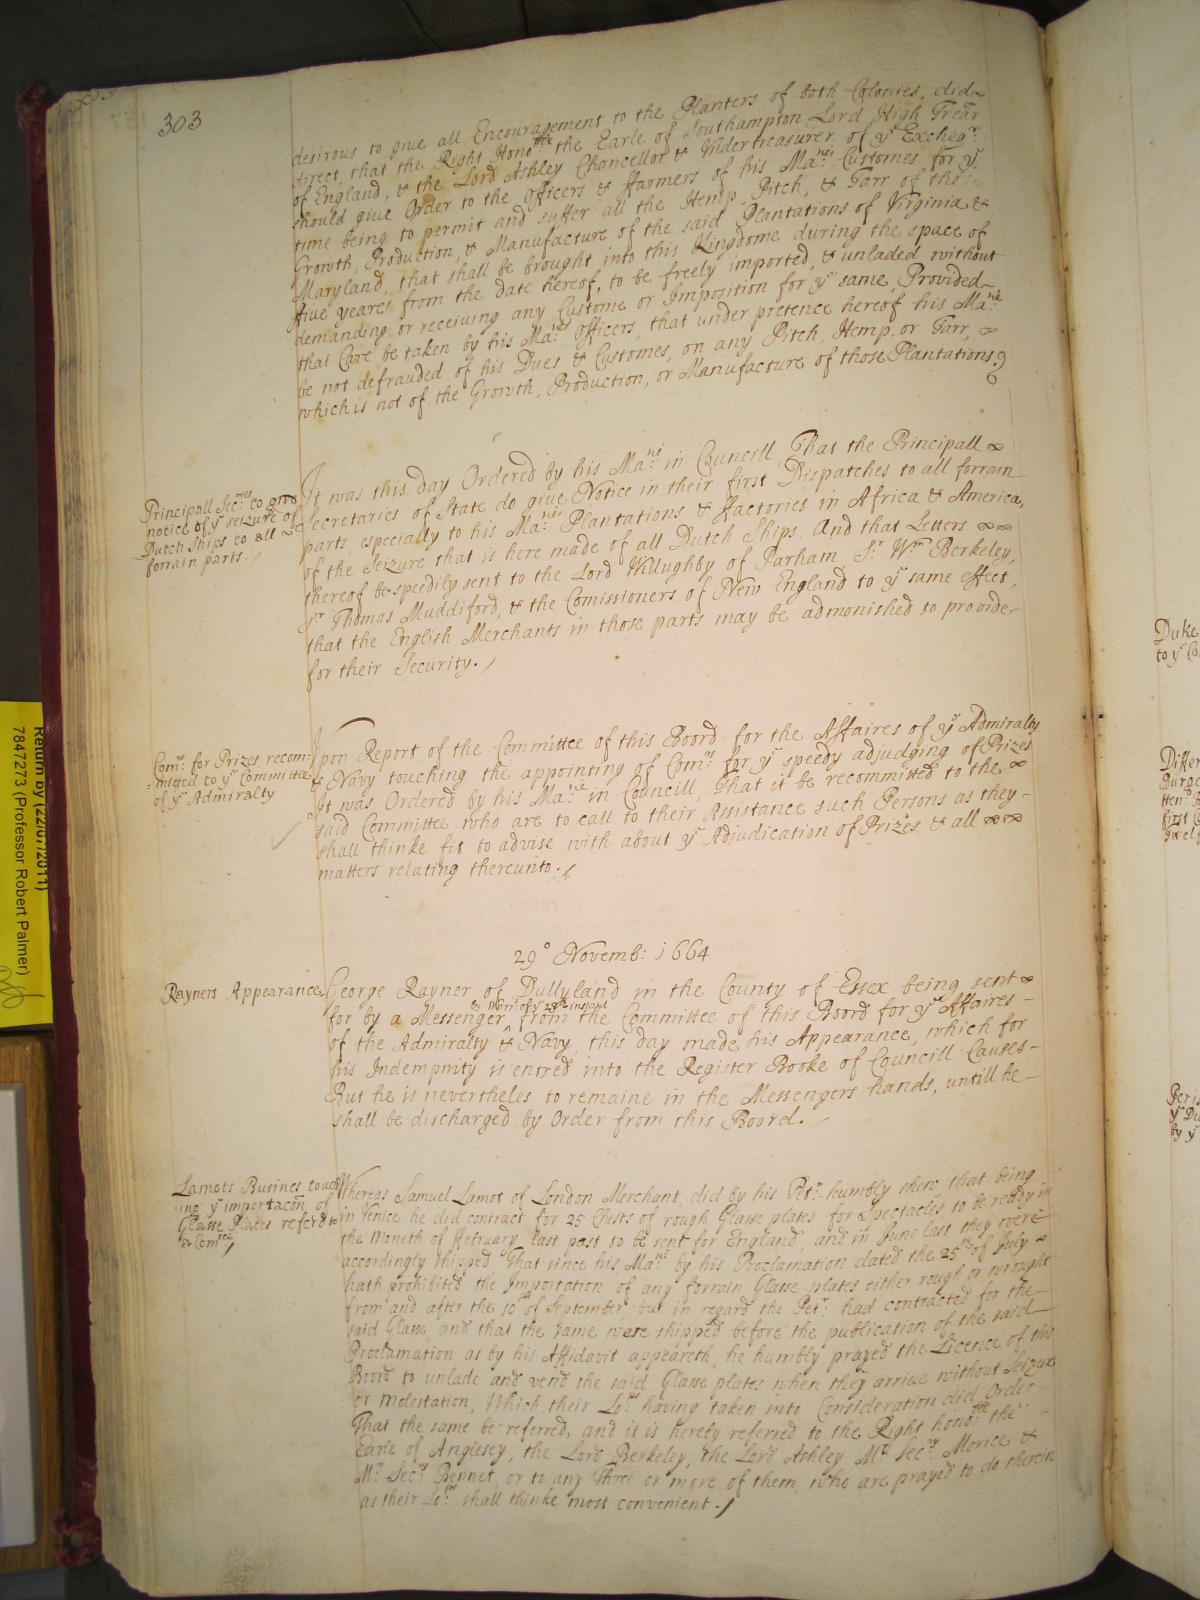 303
desirous to give all Encouragement to the Planters of both Colonies, did
direct, that the Right Hono:ble the Earle of Southampton Lord High Trear
of England, & the Lord Ashley Chancellor & Vndertreasurer of ye Excheqr:
should give Order to the Officers & ffarmers of his Ma:ties Customes for ye
time being to permit and suffer all the Hemp, Pitch, & Tarr of the
Growth, Production, & Manufacture of the said Plantations of Virginia &
Maryland, that shall be brought into this Kingdome during the space of
ffive yeares from the date hereof, to be freely imported, & unladed without
demanding or receiving any Custome or Imposition for ye same, Provided
that Care be taken by his Ma:ties Officers, that under pretence hereof his Ma:tie
be not defrauded of his Dues & Customes, on any Pitch, Hemp, or Tarr,
which is not of the Growth, Production, or Manufacture of those Plantations.
Principall Secries to give
notice of ye seizure of
Dutch Ships to all
forrain parts.
It was this day Ordered by his Ma:tie in Councill, That the Principall
Secretaries of State do give Notice in their first Dispatches to all forrain
parts, especially to his Ma:ties Plantations & ffactories in Africa & America,
of the Seizure that is here made of all Dutch Ships. And that Letters
thereof be speedily sent to the Lord Willughby of Parham Sr Wm Berkeley,
Sr Thomas Muddiford, & the Comissioners of New England to ye same effect,
that the English Merchants in those parts may be admonished to provide
for their Security.
Comrs for Prizes recom-
-mitted to ye Committee
of ye Admiralty
Upon Report of the Committee of this Board for the Affaires of ye Admiralty
& Navy touching the appointing of Comrs for ye speedy adjudging of Prizes
It was Ordered by his Ma:tie in Councill, That it be recommitted to the
said Committee, who are to call to their Assistance such Persons as they
shall thinke fit to advise with about ye Adjudication of Prizes, & all
matters relating thereunto.
29o Novemb: 1664
Rayners Appearance
George Rayner of Dullyland in the County of Essex being sent
for by a Messenger from the Committee of this Board for ye Affaires
of the Admiralty & Navy, this day made his Appearance, which for
his Indempnity is entred into the Register Booke of Councill Causes
But he is nevertheles to remaine in the Messengers hands, untill he
shall be discharged by Order from this Board.
Lamots Busines touch
ing ye importacon of
Glasse Plates referd to
a Comtee
Whereas Samuel Lamot of London Merchant, did by his Petn: humbly shew that being
in Venice he did contract for 25 Chests of rough Glasse plates for Spectacles to be ready in
the Moneth of February last past to be sent for England, and in June last they were
accordingly shipped, That since his Ma:tie by his Proclamation dated the 25th of July
hath prohibited the Importation of any forrain Glasse plates either rough or wrought
from and after the 10th of September but in regard the Petr: had contracted for the
said Glasse, and that the same were shipped before the publication of the said
Proclamation as by his Affidavit appeareth, he humbly prayed the Licence of this
Board to unlade and vend the said Glasse plates when they arrive without Seizure
or Molestation, Which their Lo:ps having taken into Consideration did Order
That the same be referred, and it is hereby referred to the Right hono:ble the
Earle of Anglesey, the Lord Berkeley, the Lord Ashley Mr Secry Morice &
Mr Secry Bennet, or to any Three or more of them, who are prayed to do therein
as their Lo:ps shall thinke most convenient.
Return by (22/07/2011)
7847273 (Professor Robert Palmer)
Duke
to ye Co